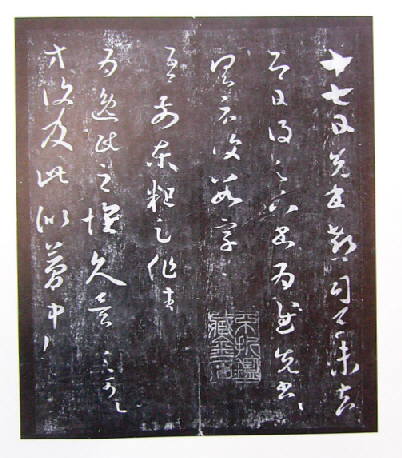 十七日先書郗司馬未去
即日得足下書為慰先書以
具示復數字
吾前東粗足作佳
為逸民之懷久矣足下何以
方復及此似夢中語